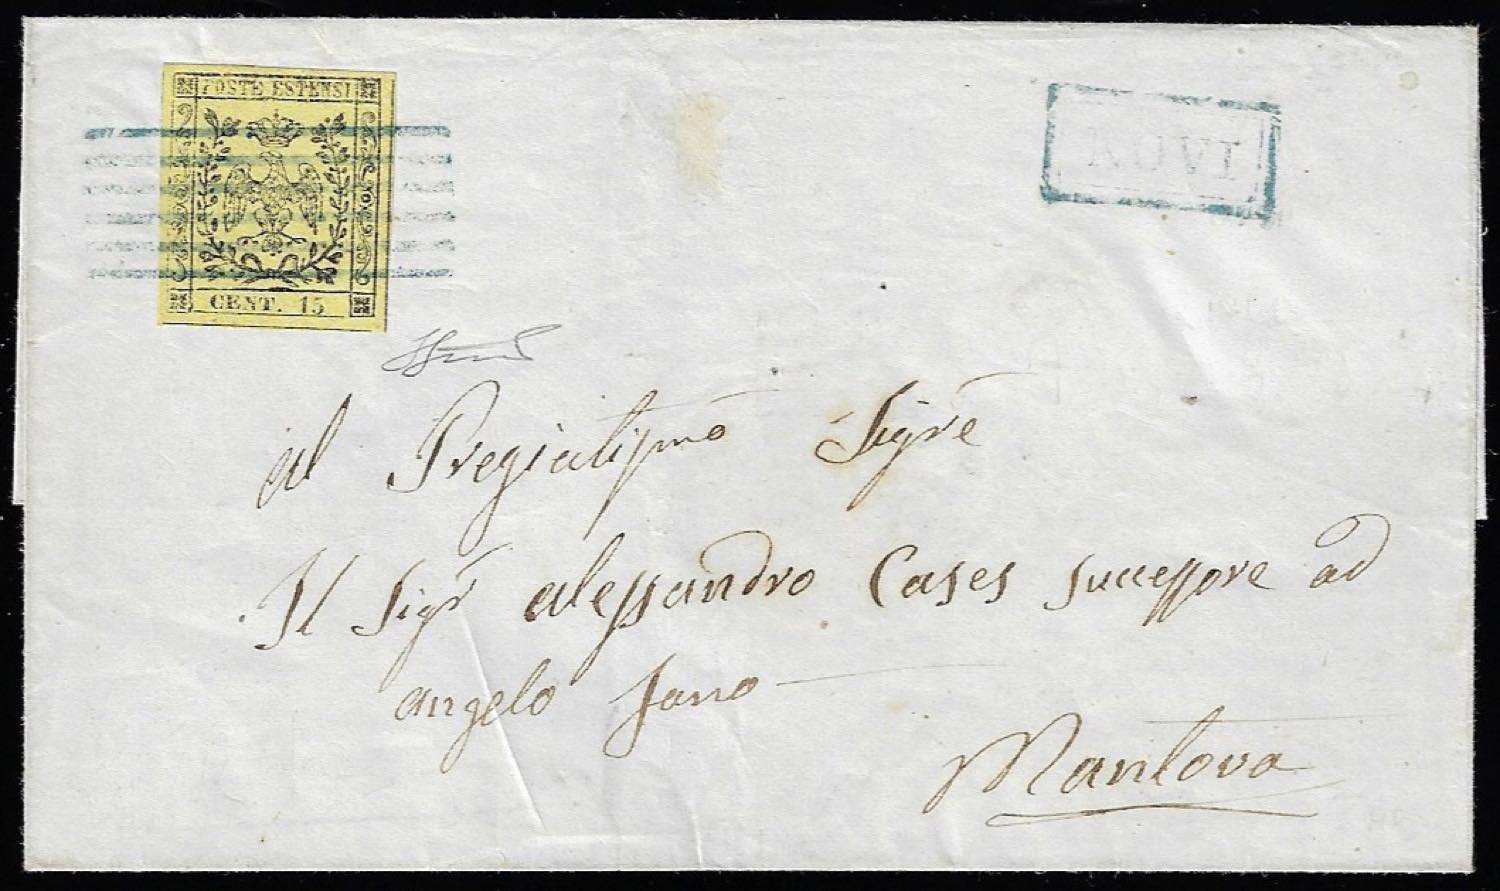 POSTE ESTENSI
CENT. 15
al Pregiatissmo Sigre
Il Sigr alessandro Cases successore ad
angelo Fano
Mantova